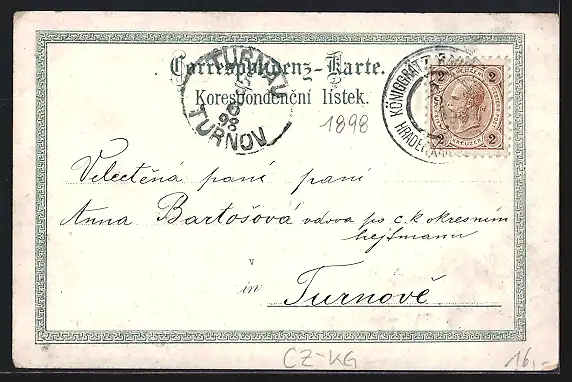 Correspondenz-Karte.
Korespondenční lístek.
TURNAU
98
TURNOV
1898
KÖNIGGRÄTZ
HRADEC
2 2
KREUZER
2 2
Velectěná paní paní
Anna Bartošová vdova po c. k. okresním
hejtmanu
v
in Turnově
CZ-KG
16,-